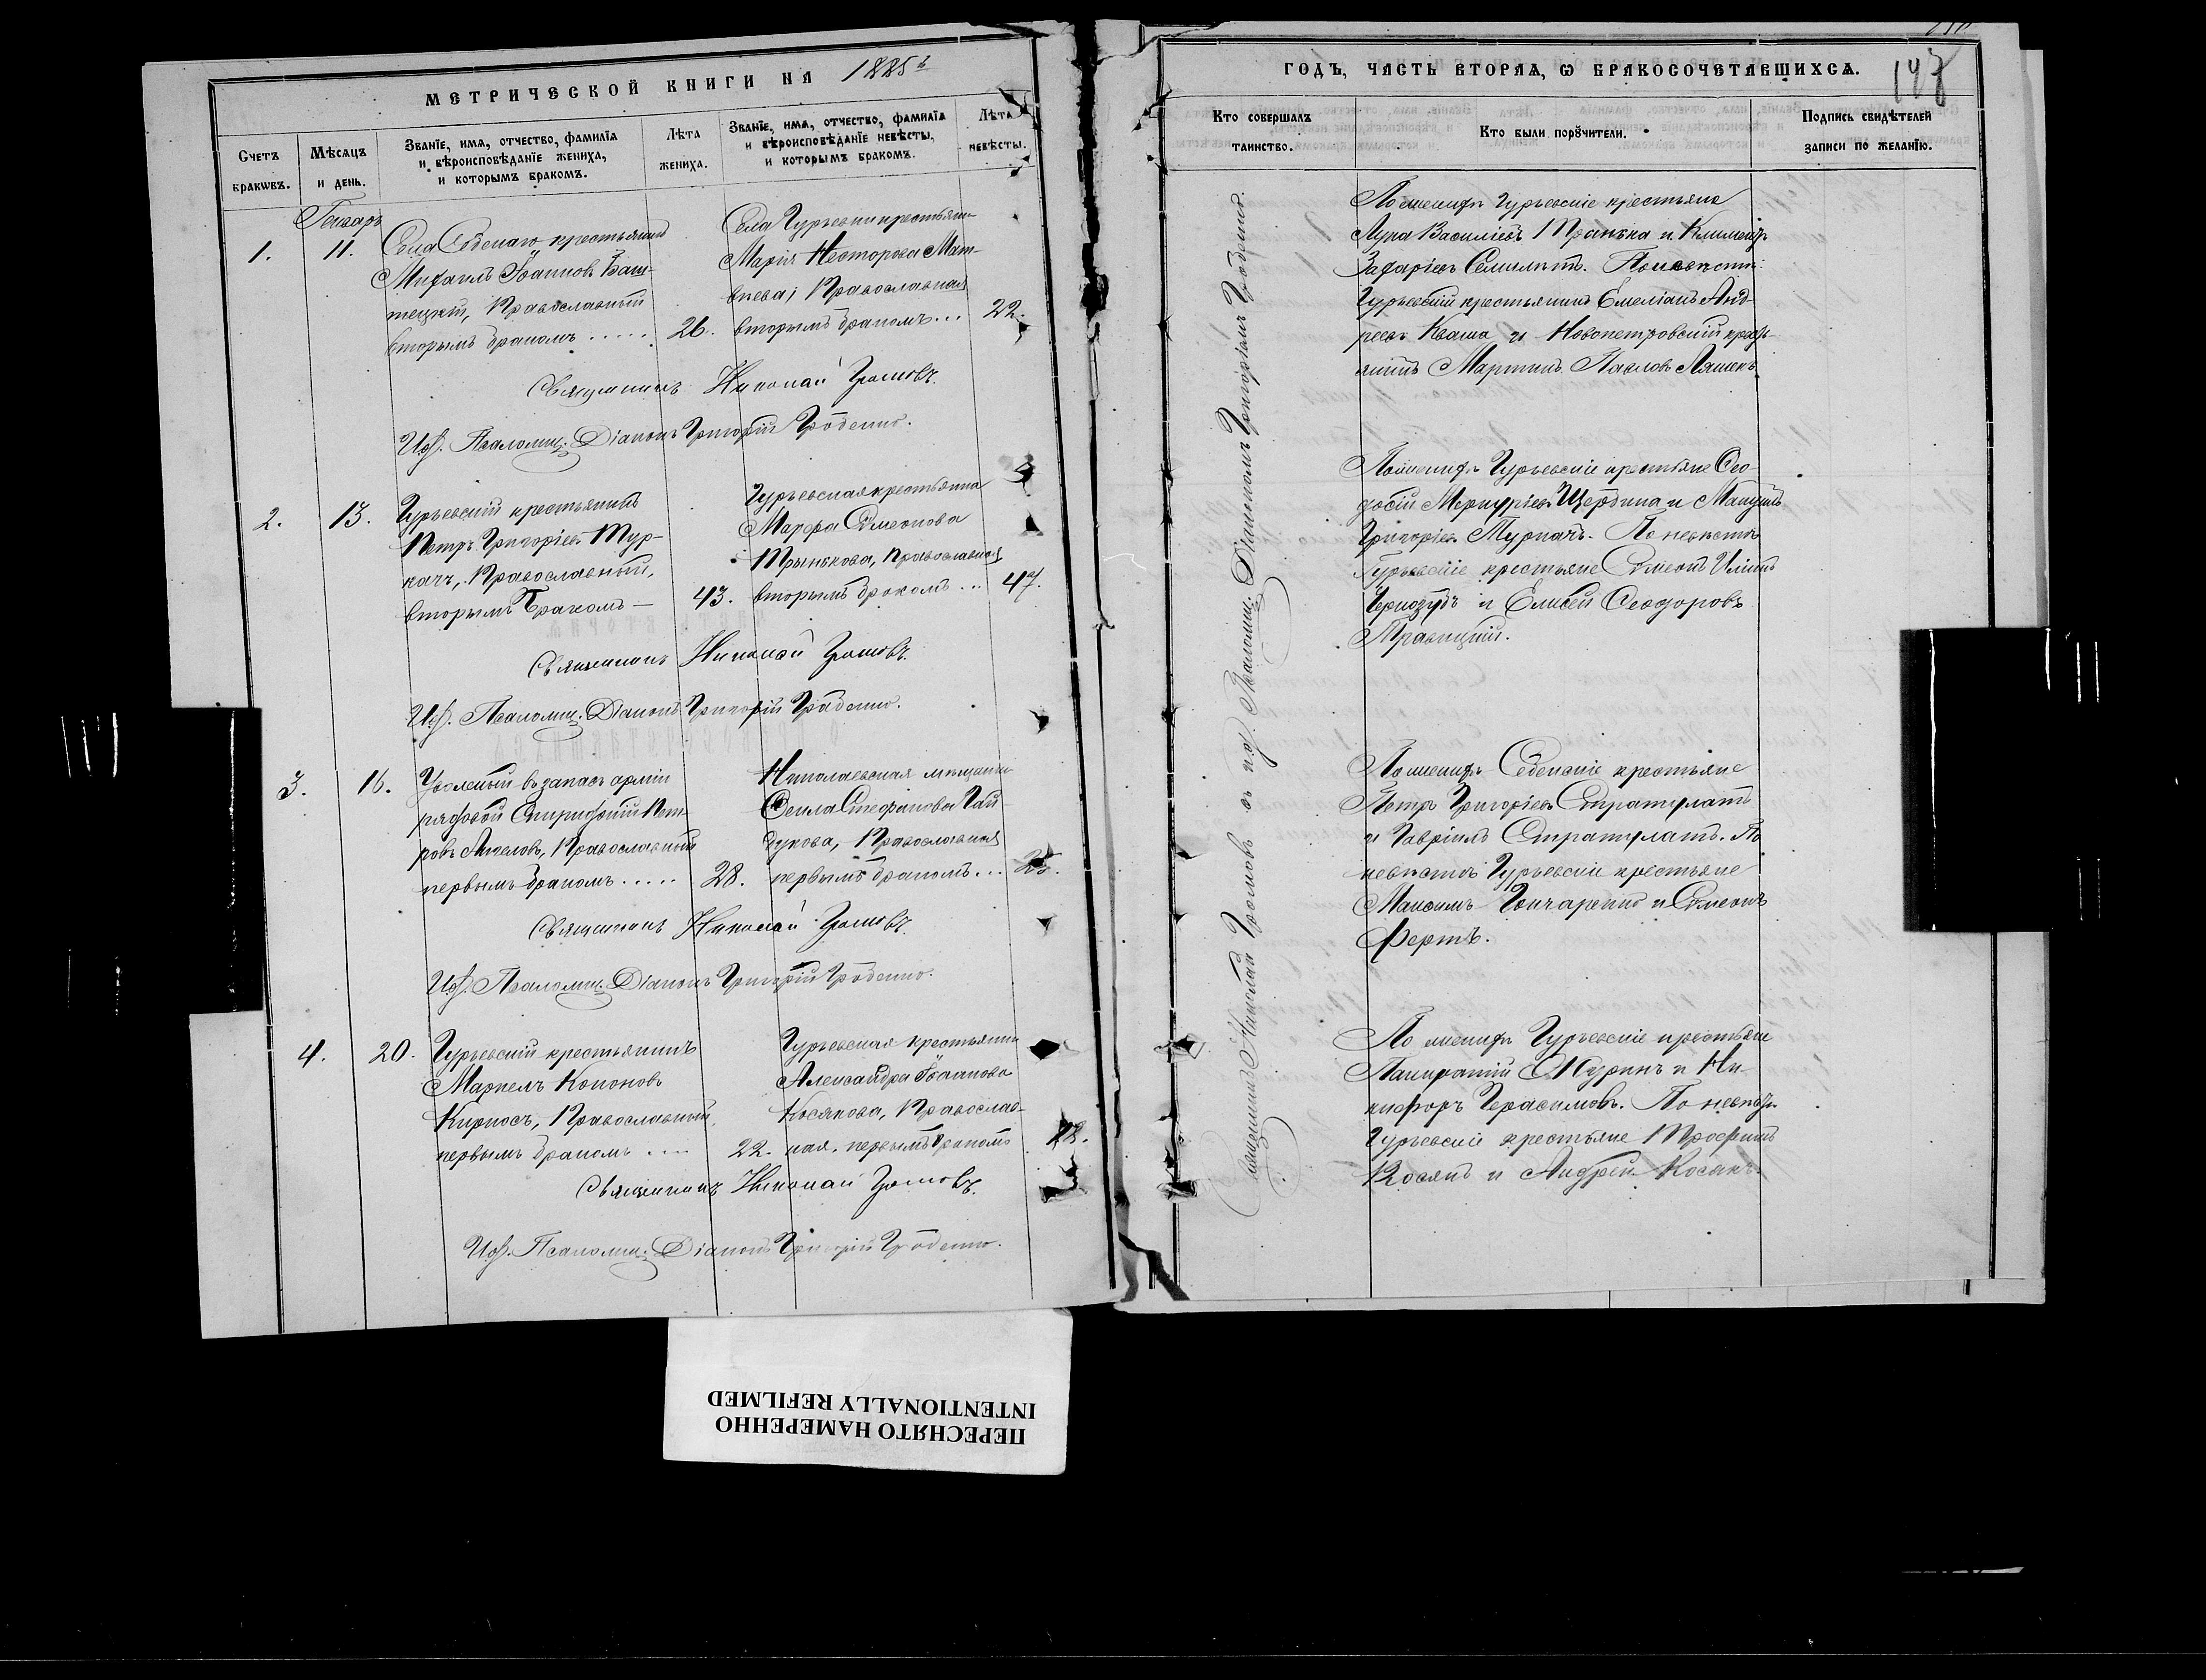 МЕТРИЧЕСКОЙ КНИГИ НА 1885й
Счетъ браковъ.
Мѣсяцъ и день.
Званїе, имя, отчество, фамилїя
и вѣроисповѣданїе жениха,
и которымъ бракомъ.
Лѣта
жениха.
Званїе, имя, отчество, фамилїя
и вѣроисповѣданїе невѣсты,
и которымъ бракомъ.
Лѣта
невѣсты.
Генварь
1. 11.
Села Себенаго крестьянинъ
Михаилъ Іоанновъ Баш-
тецкій, Православный
вторымъ бракомъ ..... 26.
Села Гурьевки крестьян-
Марія Несторова Мат-
вѣева, Православная
вторымъ бракомъ... 22.
Священникъ Николай Громовъ.
И.д. Псаломщ. Діаконъ Григорій Гробенко.
2. 13.
Гурьевскій крестьянинъ
Петръ Григоріевъ Тур-
качъ, Православный,
вторымъ бракомъ — 43.
Гурьевская крестьянка
Марфа Симеонова
Трынькова, Православная
вторымъ бракомъ ... 47.
Священникъ Николай Громовъ.
И.д. Псаломщ. Діаконъ Григорій Гробенко.
3. 16.
Уволеный въ запасъ арміи
рядовой Спиридонъ Пет-
ровъ Ангеловъ, Православный
первымъ бракомъ ..... 28.
Николаевская мѣщанка
Стефанова Гай-
дукова, Православная
первымъ бракомъ...
Священникъ Николай Громовъ.
И.д. Псаломщ. Діаконъ Григорій Гробенко.
4. 20.
Гурьевскій крестьянинъ
Маркелъ Кононовъ
Кирносъ, Православный,
первымъ бракомъ .... 22.
Гурьевская крестьянка
Александра Іоаннова
Косякова, Православ-
ная, первымъ бракомъ
Священникъ Николай Громовъ.
И.д. Псаломщ. Діаконъ Григорій Гробенко.
ГОДЪ, ЧАСТЬ ВТОРАЯ, Ѡ БРАКОСОЧЕТАВШИХСЯ.
Кто совершалъ
таинство.
Кто были порꙋчители.
Подпись свидѣтелей
записи по желанїю.
Священникъ Николай Громовъ съ и.д. Псаломщ. Діакономъ Григоріемъ Гробенко.
По женихѣ Гурьевскіе крестьяне
Лука Василіевъ Транька и Климентъ
Захаріевъ По невѣстѣ
Гурьевскій крестьянинъ Емеліанъ Анд-
реевъ Кваша и Новопетровскій крест-
янинъ Мартинъ Павловъ Ляшенк.
По женихѣ Гурьевскіе крестьяне Ѳео-
досій Меркуріевъ Щербина и
Григоріевъ Туркачъ. По невѣстѣ
Гурьевскіе крестьяне Симеонъ Илiинъ
Чернозубъ и Елисей Ѳеодоровъ
Травицкій.
По женихѣ Себенскіе крестьяне
Петръ Григоріевъ Стратулатъ
и Гавріилъ Стратулатъ. По
невѣстѣ Гурьевскіе крестьяне
Максимъ Гончаренко и Симеонъ
Фертъ.
По женихѣ Гурьевскіе крестьяне
Панкратій Журикъ и Ни-
кифоръ Герасимовъ. По невѣстѣ
Гурьевскіе крестьяне Трофимъ
Косякъ и Андрей Косякъ.
ПЕРЕСНЯТО НАМЕРЕННО
INTENTIONALLY REFILMED